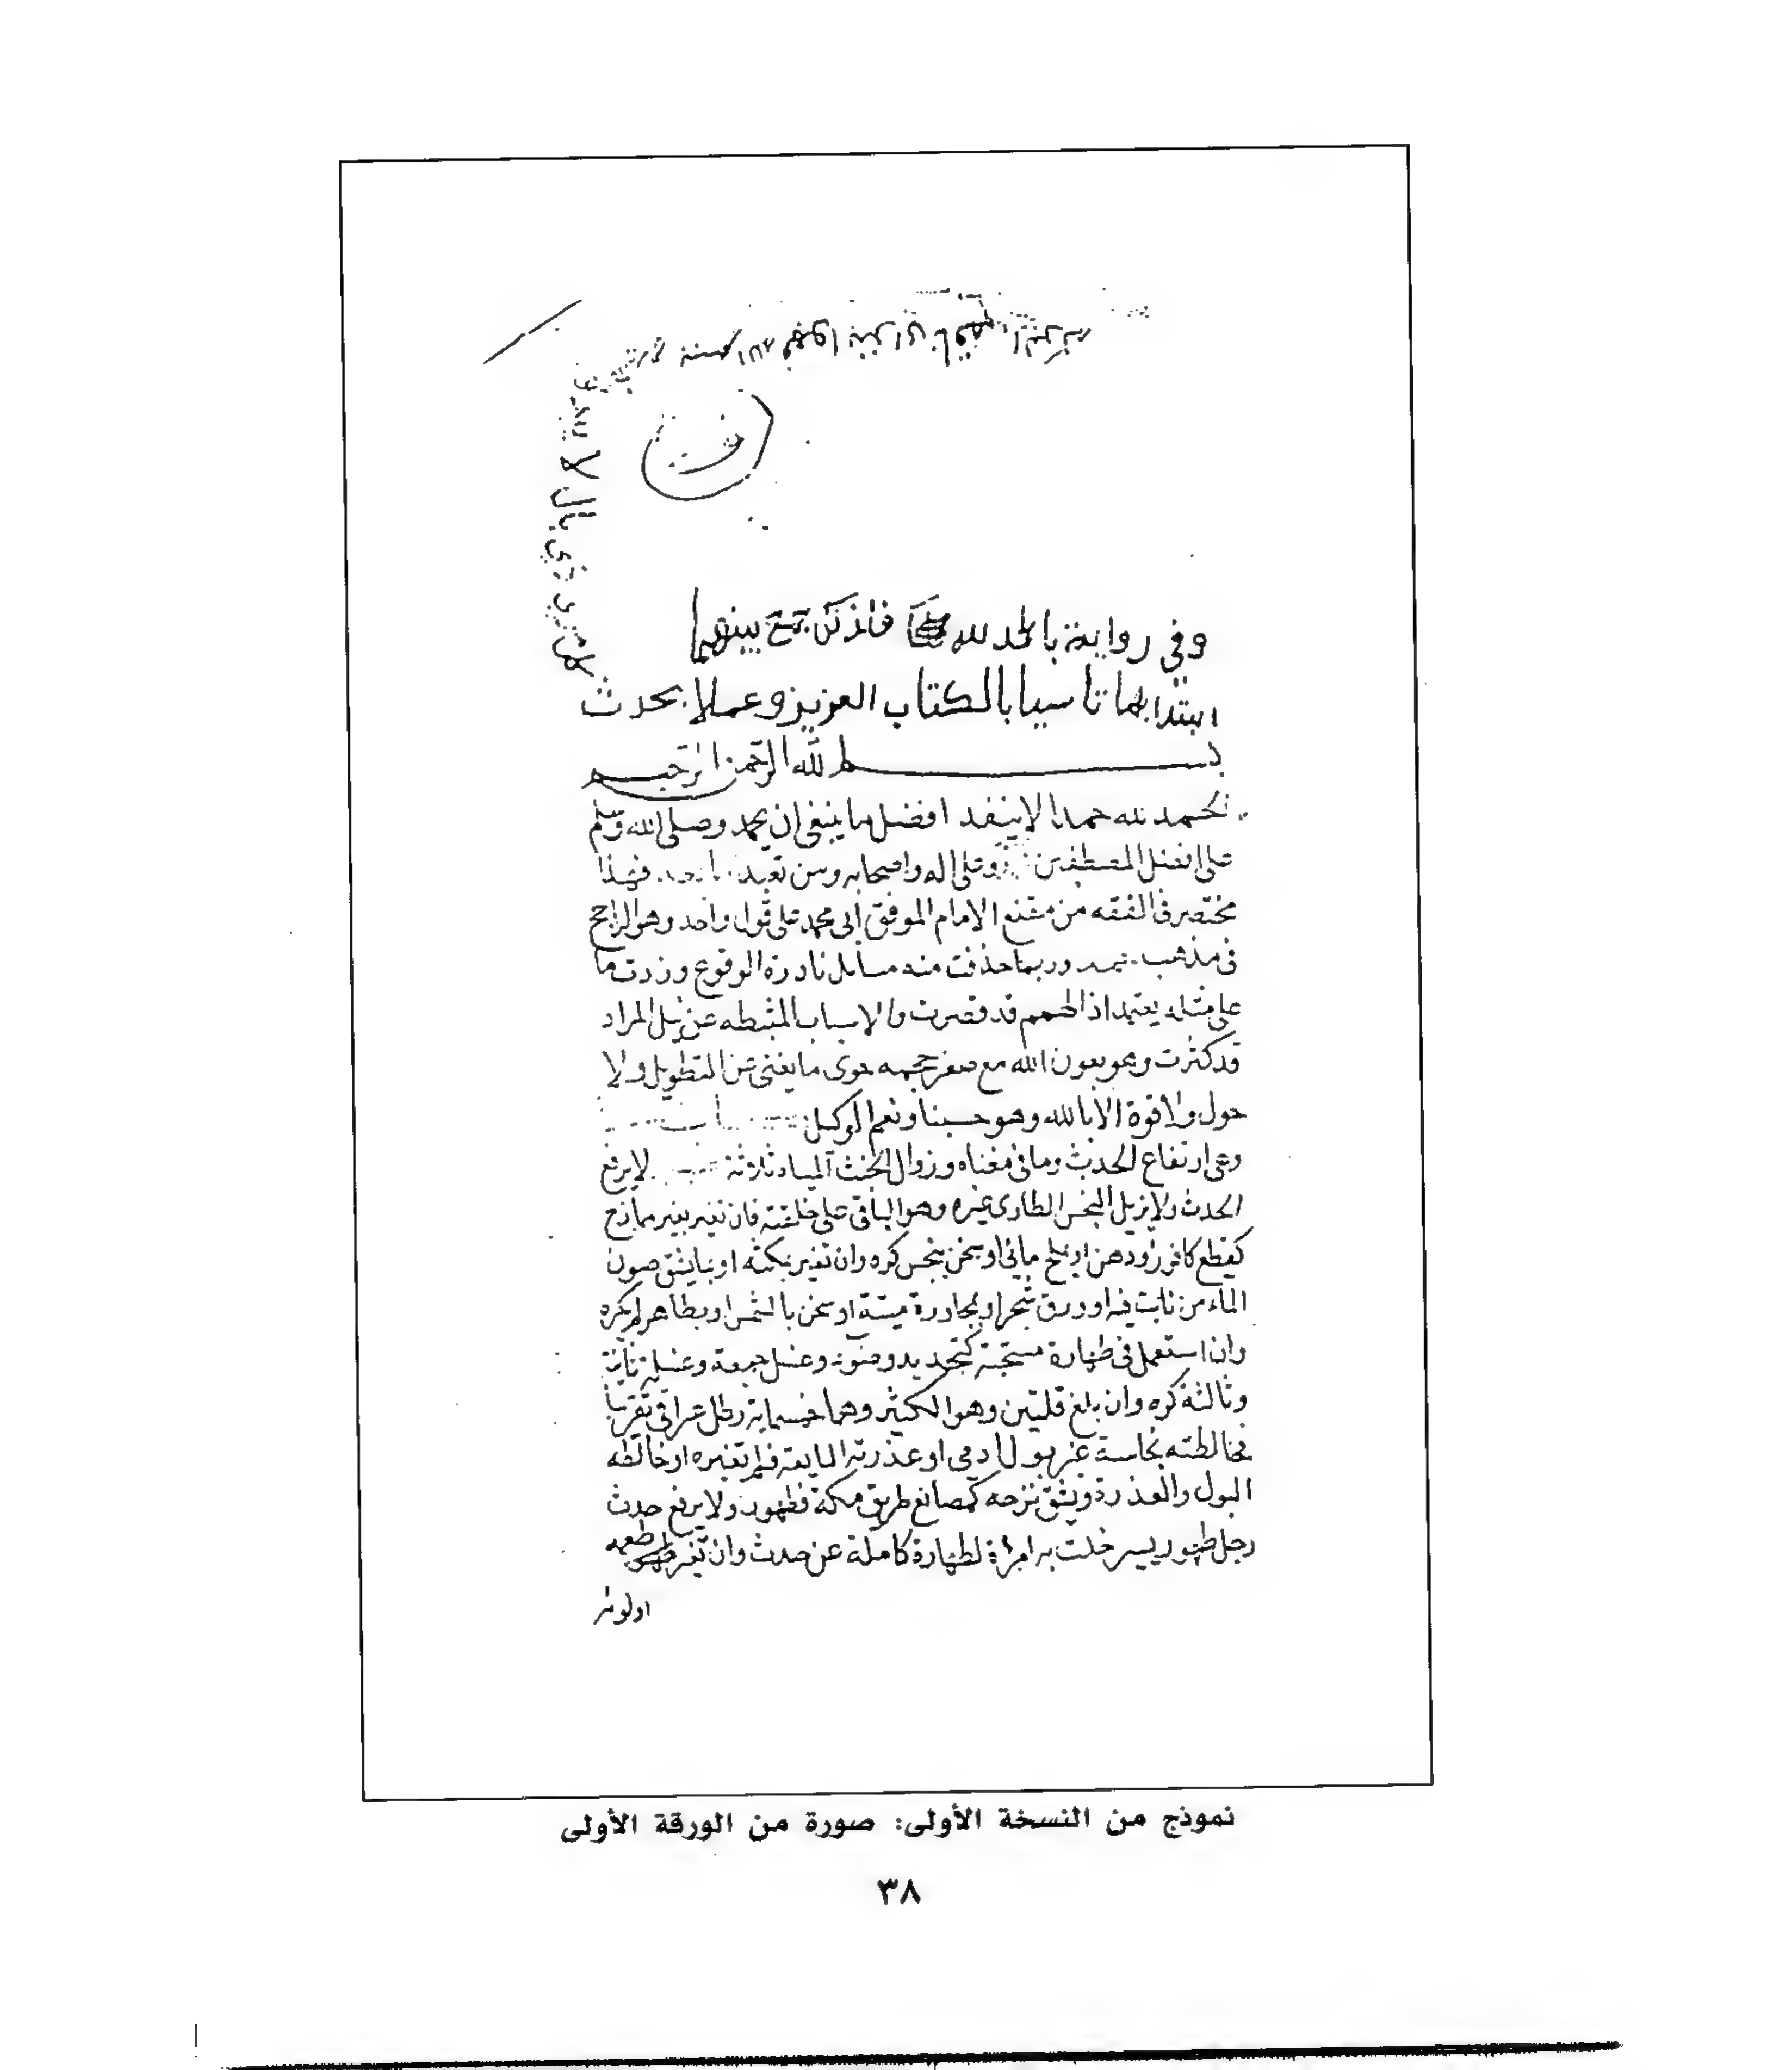 لا يبد
كل امر ذي بال
وفي رواية بالحمد لله فلذلك جمع بينهما
ابتدا بهما تاسيا بالكتاب العزيز وعملا بحدث
بسم الله الرحمن الرحيم
الحمد لله حمدا لا ينفد افضل ما ينبغي ان يحمد وصلى الله وسلم
على افضل المصطفين وعلى اله واصحابه ومن تعبد اما بعد فهذا
مختصر في الفقه من مقنع الامام الموفق ابي محمد على قول واحد وهو الراجح
في مذهب احمد وربما حذفت منه مسائل نادرة الوقوع وزدت ما
على مثله يعتمد اذ الهمم قد قصرت والاسباب المثبطه عن نيل المراد
قد كثرت وهو بعون الله مع صغر حجمه حوى ما يغني عن التطويل ولا
حول ولا قوة الا بالله وهو حسبنا ونعم الوكيل
وهي ارتفاع الحدث وما في معناه وزوال الخبث المياه ثلاثة لا يرفع
الحدث ولا يزيل النجس الطاري غيره وهو الباقي على خلقته فان تغير بغير ممازج
كقطع كافور ودهن او بملح مائي او سخن بنجس كره وان تغير بمكثه او بما يشق صون
الماء من نابت فيه او ورق شجر او بمجاورة ميتة او سخن بالشمس او بطاهر لم يكره
وان استعمل في طهارة مستحبة كتجديد وضوء وغسل جمعة وغسلة ثانية
وثالثة كره وان بلغ قلتين وهو الكثير وهما خمسماية رطل عراقي تقريبا
فخالطته نجاسة غير بول ادمي او عذرته المايعة فلم تغيره او خالطه
البول والعذرة ويشق نزحه كمصانع طريق مكة فطهور ولا يرفع حدث
رجل طهور يسير خلت به امراة لطهارة كاملة عن حدث وان تغير طعمه
او لونه
نموذج من النسخة الأولى: صورة من الورقة الأولى
٣٨